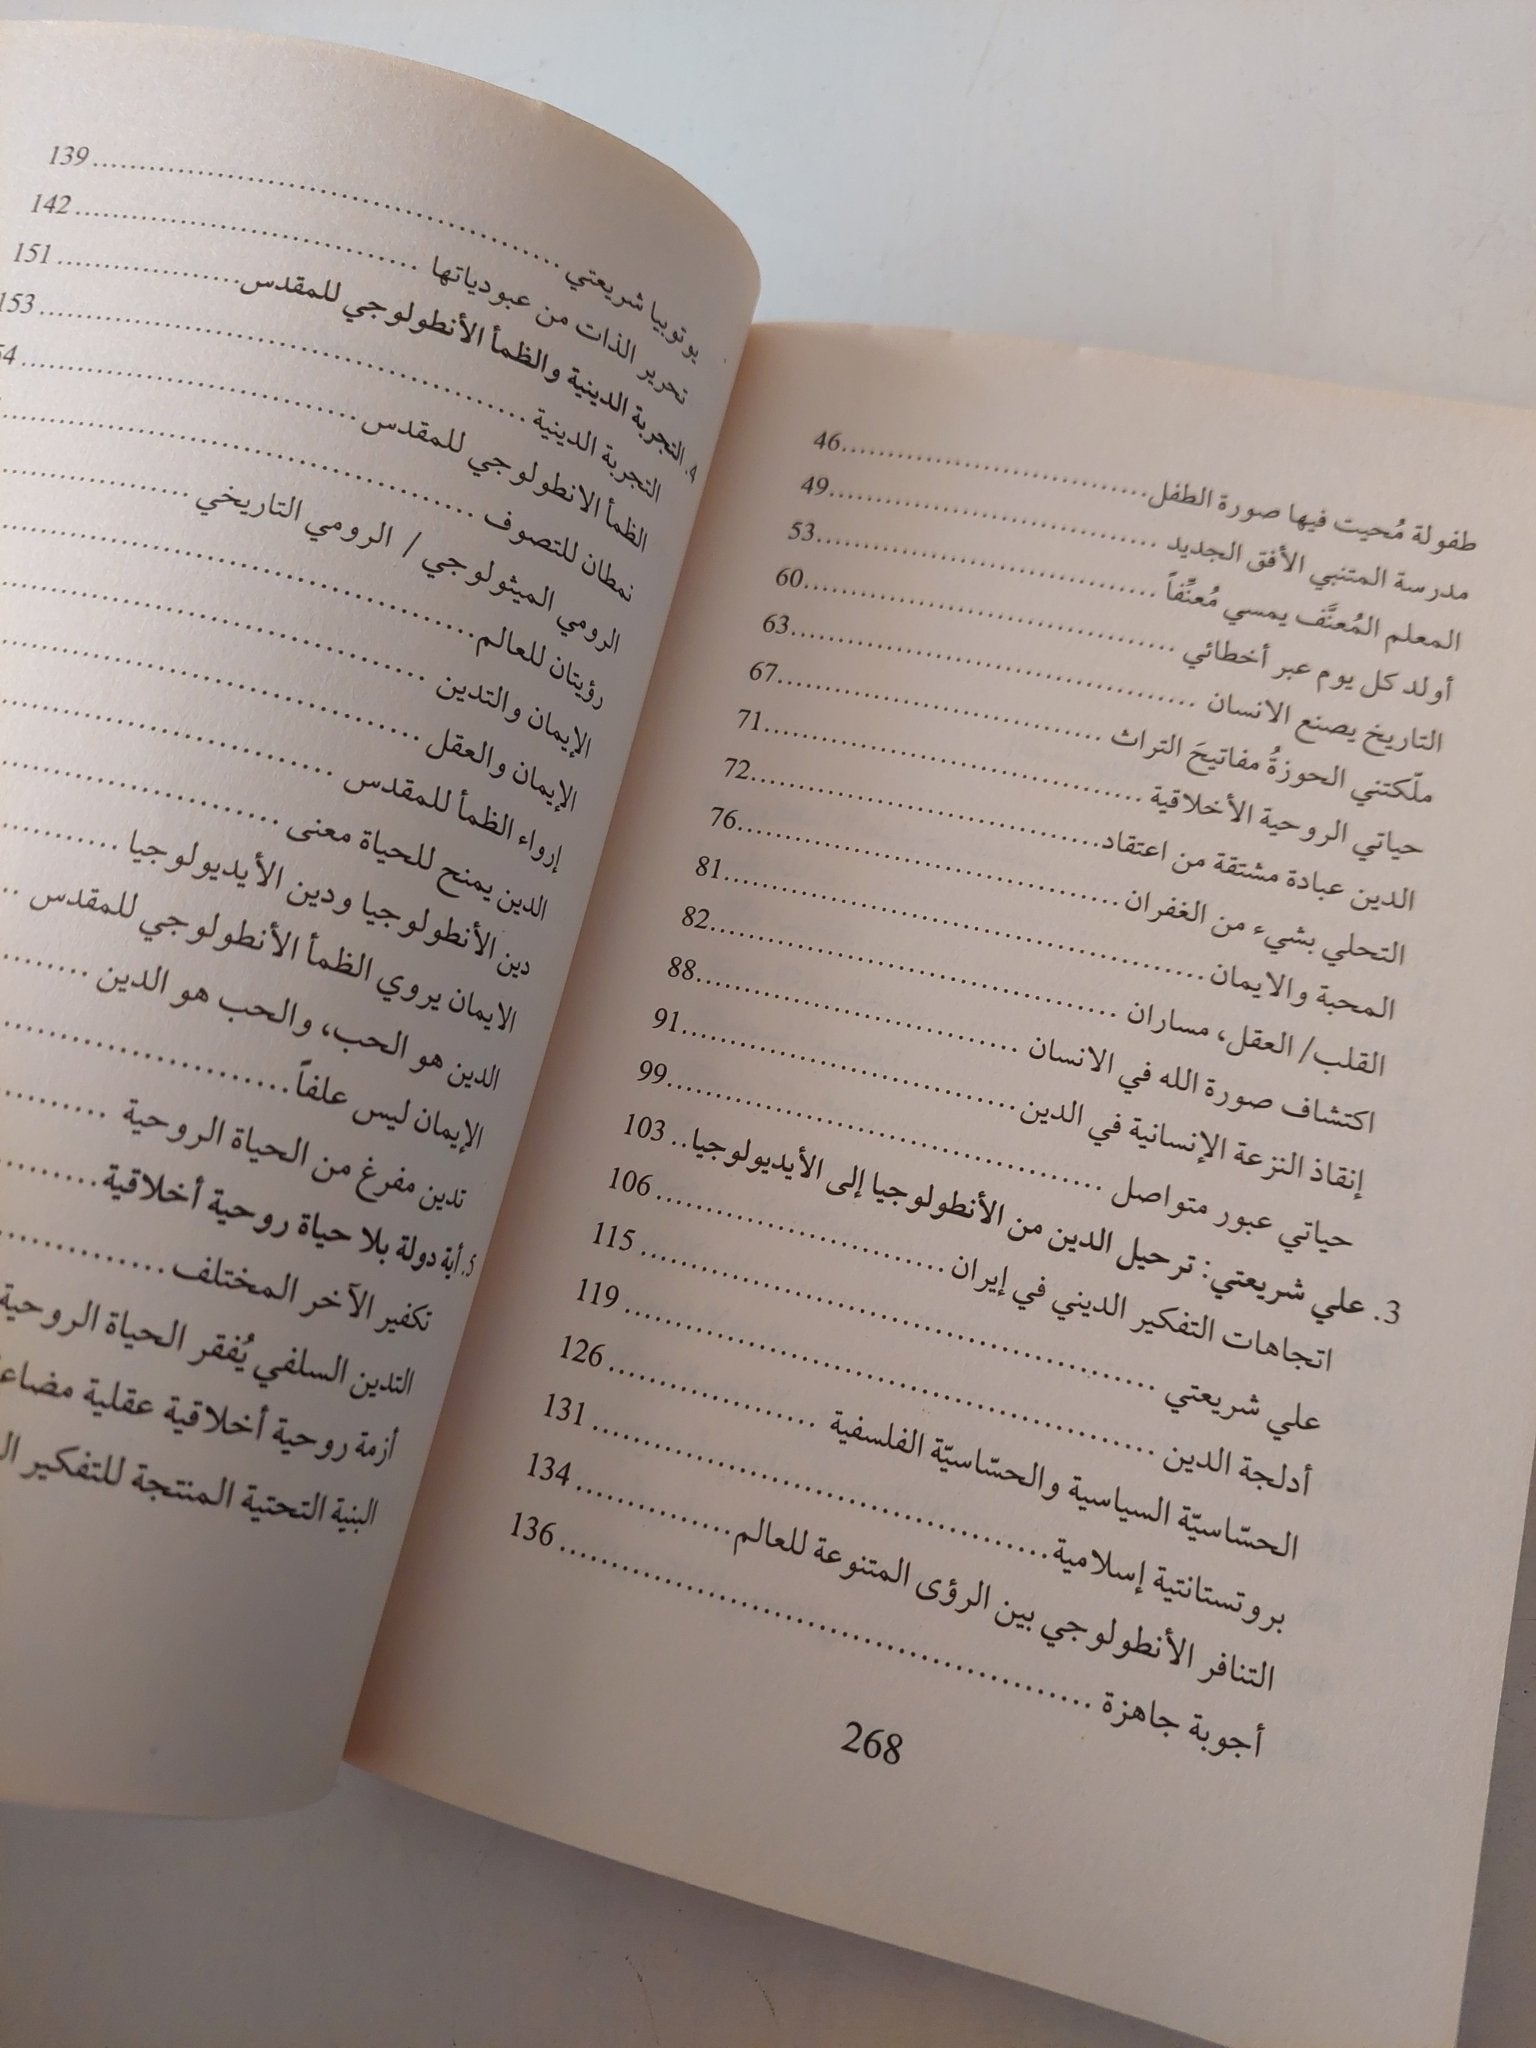 طفولة مُحيت فيها صورة الطفل 46
مدرسة المتنبي الأفق الجديد 49
المعلم المُعنَّف يمسي مُعنِّفاً 53
أولد كل يوم عبر أخطائي 60
التاريخ يصنع الانسان 63
ملّكتني الحوزةُ مفاتيحَ التراث 67
حياتي الروحية الأخلاقية 71
الدين عبادة مشتقة من اعتقاد 72
التحلي بشيء من الغفران 76
المحبة والايمان 81
القلب/ العقل، مساران 82
اكتشاف صورة الله في الانسان 88
إنقاذ النزعة الإنسانية في الدين 91
حياتي عبور متواصل 99
3. علي شريعتي: ترحيل الدين من الأنطولوجيا إلى الأيديولوجيا 103
اتجاهات التفكير الديني في إيران 106
علي شريعتي 115
أدلجة الدين 119
الحسّاسيّة السياسية والحسّاسيّة الفلسفية 126
بروتستانتية إسلامية 131
التنافر الأنطولوجي بين الرؤى المتنوعة للعالم 134
أجوبة جاهزة 136
268
يوتوبيا شريعتي 139
تحرير الذات من عبودياتها 142
4. التجربة الدينية والظمأ الأنطولوجي للمقدس 151
التجربة الدينية 153
الظمأ الانطولوجي للمقدس
نمطان للتصوف
الرومي الميثولوجي / الرومي التاريخي
رؤيتان للعالم
الإيمان والتدين
الإيمان والعقل
إرواء الظمأ للمقدس
الدين يمنح للحياة معنى
دين الأنطولوجيا ودين الأيديولوجيا
الايمان يروي الظمأ الأنطولوجي للمقدس
الدين هو الحب، والحب هو الدين
الإيمان ليس علفاً
تدين مفرغ من الحياة الروحية
5. أية دولة بلا حياة روحية أخلاقية
تكفير الآخر المختلف
التدين السلفي يُفقر الحياة الروحية
أزمة روحية أخلاقية عقلية
البنية التحتية المنتجة للتفكير